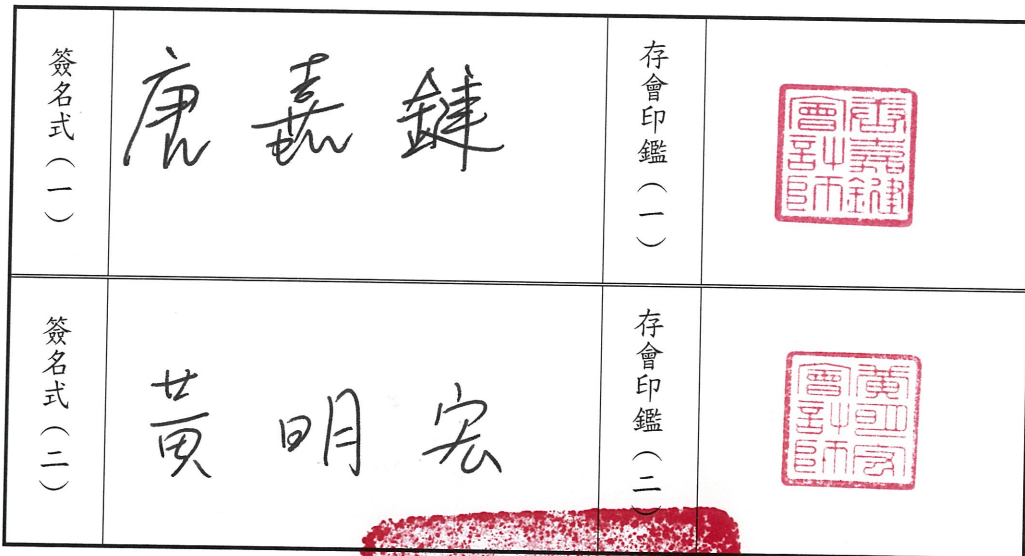 簽名式（一）
唐嘉鍵
存會印鑑（一）
唐嘉鍵
會計師
簽名式（二）
黃明宏
存會印鑑（二）
黃明宏
會計師